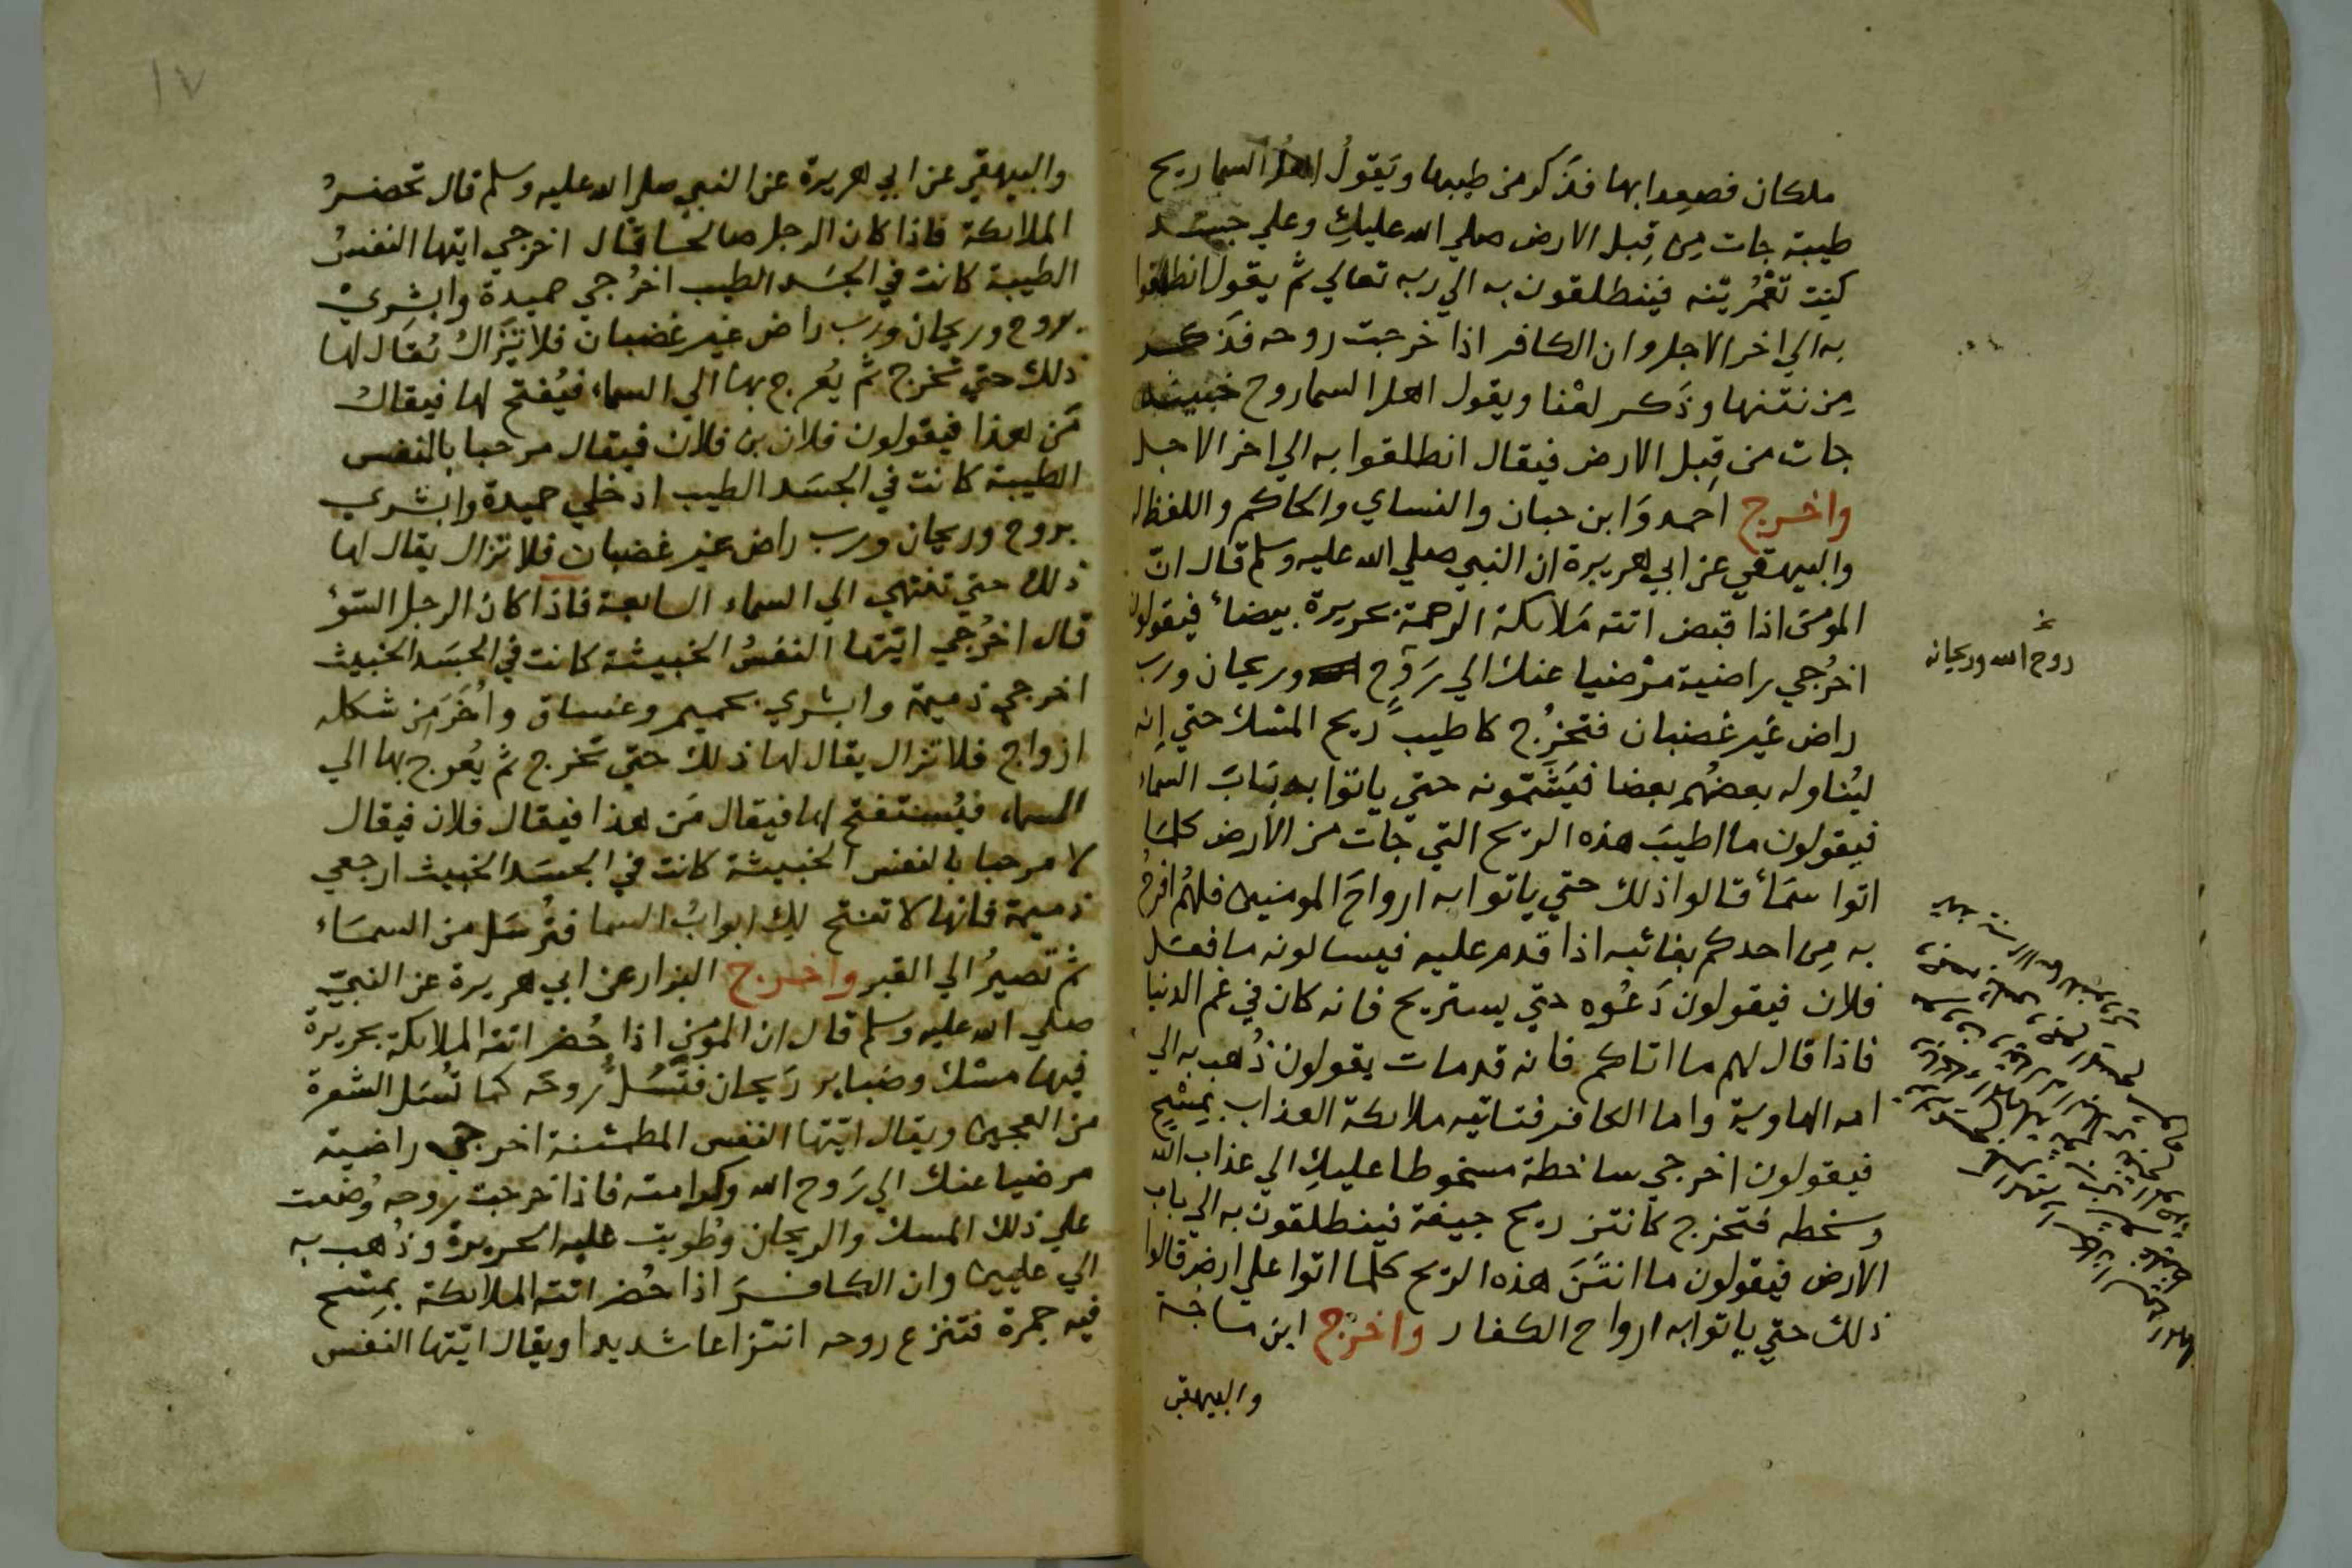 ملكان فصعدا بها فذكر من طيبها ويقولُ اهل السما ريح
طيبة جات مِن قِبل الارض صلي الله عليكِ وعلي جسد
كنِت تعْمُرينه فينطلقون به الي ربه تعالي ثم يقول انطلقوا
به الي اخر الاجل وان الكافر اذا خرجت روحه فذكر
مِن نتنها وذَكر لعْنا ويقول اهل السما روح خبيثة
جات من قِبل الارض فيقال انطلقوا به الي اخر الاجل
واخرج احمد وَابن حبان والنساي والحاكم واللفظ له
والبيهقي عن ابي هريرة ان النبي صلي الله عليه وسلم قال انّ
المومن اذا قبض اتته مَلائكة الرحمة بحريرة بيضاء فيقولون
اخرُجي راضية مرْضيا عنك الي رَوح وريحان ورب
راض غَير غضبان فتخرُج كاطيب ريح المسْك حتي إنه
ليُناوله بعضهُم بعضا فيَشَمّونه حتي ياتوا به بَابَ السماء
فيقولون ما اطيبَ هذه الريح التي جات من الارض كلمَا
اتوا سمَاء قالوا ذلك حتي ياتوا به ارواحَ المومنين فلهُم افرحُ
به مِن احدكم بغائبه اذا قدم عليه فيسالونه ما فعَل
فلان فيقولون دَعُوه حتي يستريح فانه كان في غم الدنيا
فاذا قال لهم ما اتاكم فانه قد مات يقولون ذُهب به الي
امه الهاوية واما الكافر فتاتيه ملائكة العذاب بِمسْحٍ
فيقولون اخرجي ساخطة مسخوطا عليكِ الي عذاب الله
وسخطه فتخرج كانتن ريح جيفة فينطلقون به الي باب
الارض فيقولون ما انتَنَ هذه الريح كلما اتوا علي ارض قالوا
ذلك حتي ياتوا به ارواح الكفار واخرج ابن ماجَة
والبيهقي
روح الله وريحانه
١٧
والبيهقي عن ابي هريرة عن النبي صلي الله عليه وسلم قال تحضرُ
الملائكة فاذا كان الرجل صالحا قال اخرجي ايتها النفسُ
الطيبة كانت في الجسَد الطيب اخرُجي حميدة وابشِريْ
بروح وريحان ورب راض غير غضبان فلا تزَالُ يُقال لها
ذلك حتي تخرج ثم يُعرج بها الي السماء فيُفتح لها فيقالُ
مَن هذا فيقولون فلان بن فلان فيقال مرحبا بالنفس
الطيبة كانت في الجسَد الطيب ادخلي حميدة وابشري
بروح وريحان ورب راض غير غضبان فلا تزال يقال لها
ذلك حتي تنتهي الي السماء السابعة فاذا كان الرجل السّوْءُ
قال اخرُجي ايّتها النفسُ الخبيثة كانت في الجسَد الخبيث
اخرجي ذميمة وابشري بحميم وغساق واُخَرَ مِن شكله
ازواج فلا تزال يقال لها ذلك حتي تخرج ثم يُعرج بها الي
السماء فيُستفتح لها فيقال مَن هذا فيقال فلان فيقال
لا مرحبا بالنفس الخبيثة كانت في الجسَد الخبيث ارجعي
ذميمة فانها لا تفتح لكِ ابوابُ السما فتُرسَل من السمَاء
ثم تَصيرُ الي القبر واخرج البزار عن ابي هريرة عن النبيّ
صلي الله عليه وسلم قال ان المؤمن اذا حُضر اتته الملائكة بحريرة
فيها مسْك وضبابر رَيحان فتُسَلُّ رُوحَه كما تُسَل الشعرة
من العجين ويقال ايّتها النفس المطمئنة اخرجي راضية
مرضيا عنك الي رَوح الله وكرامته فاذا خرجت روحه وُضعت
علي ذلك المسك والريحان وطُويت عليه الحريرة وذُهب به
الي عليين وان الكافرَ اذا حُضر اتته الملائكة بِمسْح
فيه جمرة فتنزع روحه انتزاعا شديدا ويقال ايّتها النفس